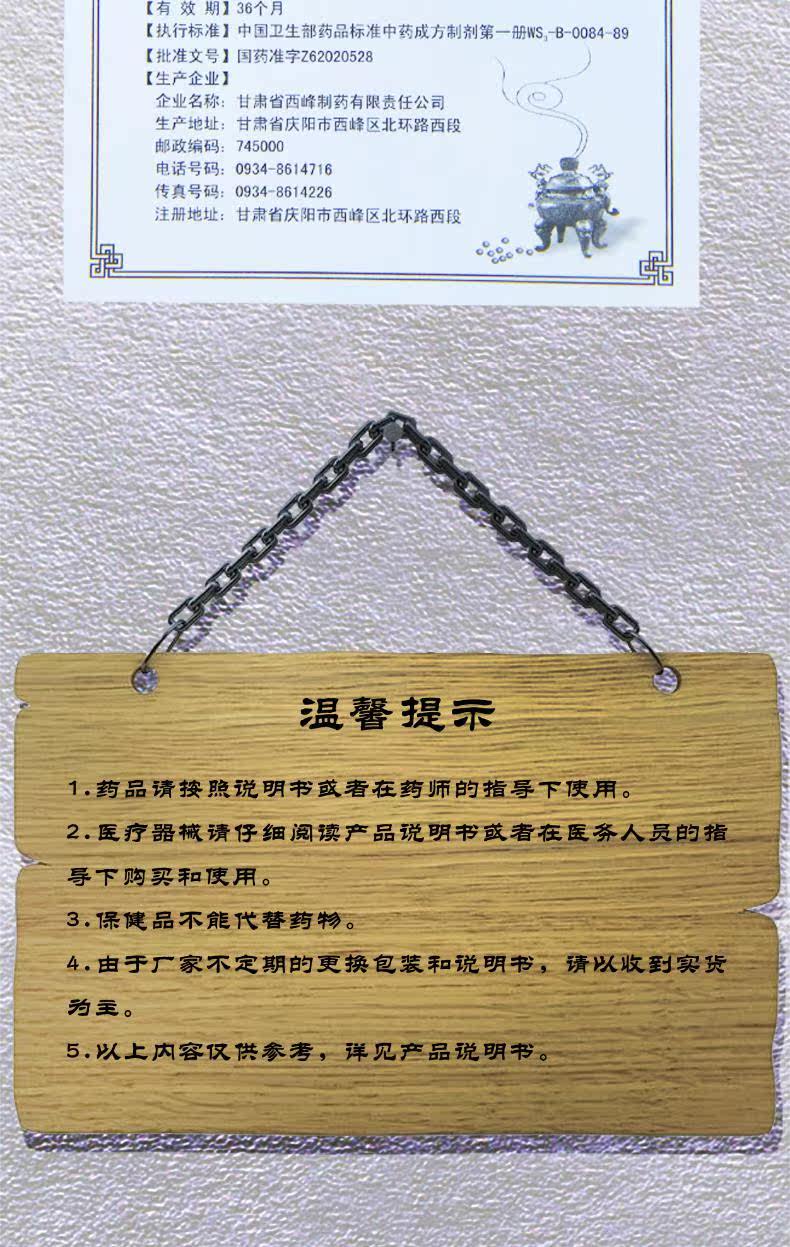 【有 效 期】36个月
【执行标准】中国卫生部药品标准中药成方制剂第一册WS₃-B-0084-89
【批准文号】国药准字Z62020528
【生产企业】
企业名称：甘肃省西峰制药有限责任公司
生产地址：甘肃省庆阳市西峰区北环路西段
邮政编码：745000
电话号码：0934-8614716
传真号码：0934-8614226
注册地址：甘肃省庆阳市西峰区北环路西段
温馨提示
1.药品请按照说明书或者在药师的指导下使用。
2.医疗器械请仔细阅读产品说明书或者在医务人员的指
导下购买和使用。
3.保健品不能代替药物。
4.由于厂家不定期的更换包装和说明书，请以收到实货
为主。
5.以上内容仅供参考，详见产品说明书。